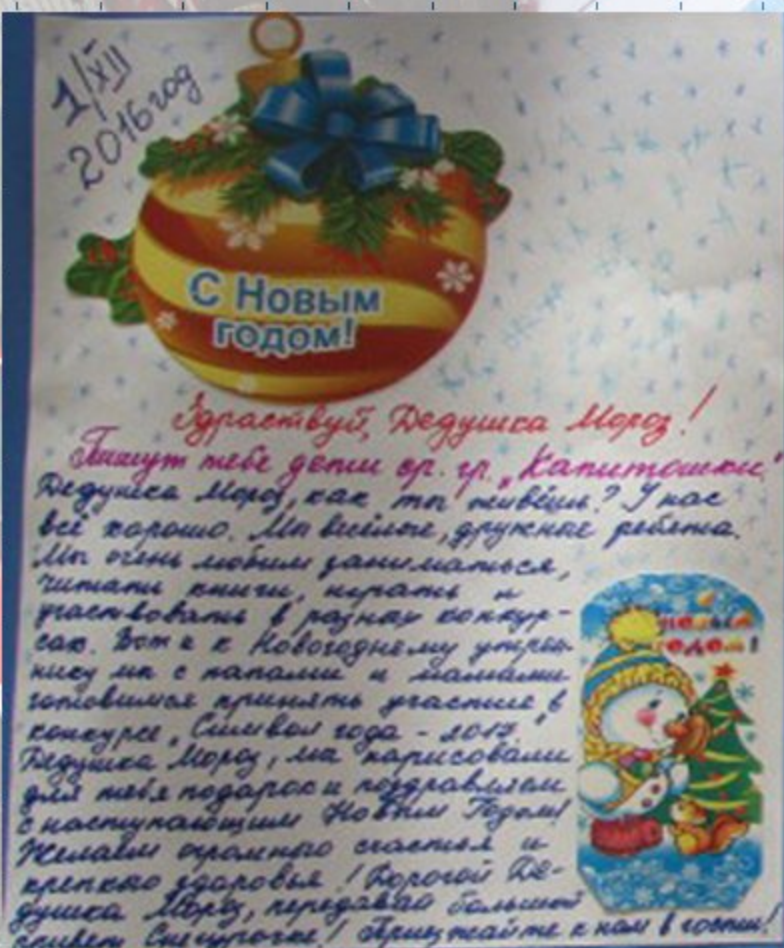 1/XII
2016 год
С Новым
годом!
Здраствуй, Дедушка Мороз!
Пишут тебе дети ср. гр. „Капитошки"
Дедушка Мороз, как ты живёшь? У нас
всё хорошо. Мы весёлые, дружные ребята.
Мы очень любим заниматься,
читать книги, играть и
участвовать в разных конкур-
сах. Вот и к Новогоднему утрен-
нику мы с папами и мамами
готовимся принять участие в
конкурсе „Символ года - 2017"
Дедушка Мороз, мы нарисовали
для тебя подарок и поздравляем
с наступающим Новым Годом!
Желаем огромного счастья и
крепкого здоровья! Дорогой Де-
душка Мороз, передавай большой
привет Снегурочке! Приезжайте к нам в гости!
Новым
годом!